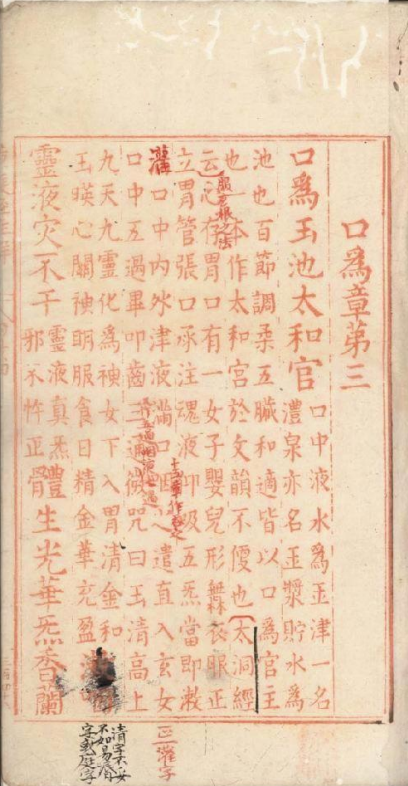 口為章第三
口為玉池太和官 口中液水為玉津一名
醴泉亦名玉漿貯水為
池也百節調柔五臟和適皆以口為官主
也一本作太和宮於文韻不優也太洞經
云心存胃口有一女子嬰兒形無衣服正
立胃管張口承注魂液仰吸五炁當即漱
灌口中內外津液滿口咽入遣直入玄女
口中五過畢叩齒三通微咒曰玉清高上
九天九靈化為神女下入胃清金和
玉暎心開神明服食日精金華充盈
靈液灾不干 靈液真炁
邪不忤正 體生光華炁香蘭
骨
正灌字
清字不妥
不如易看
字或庭字